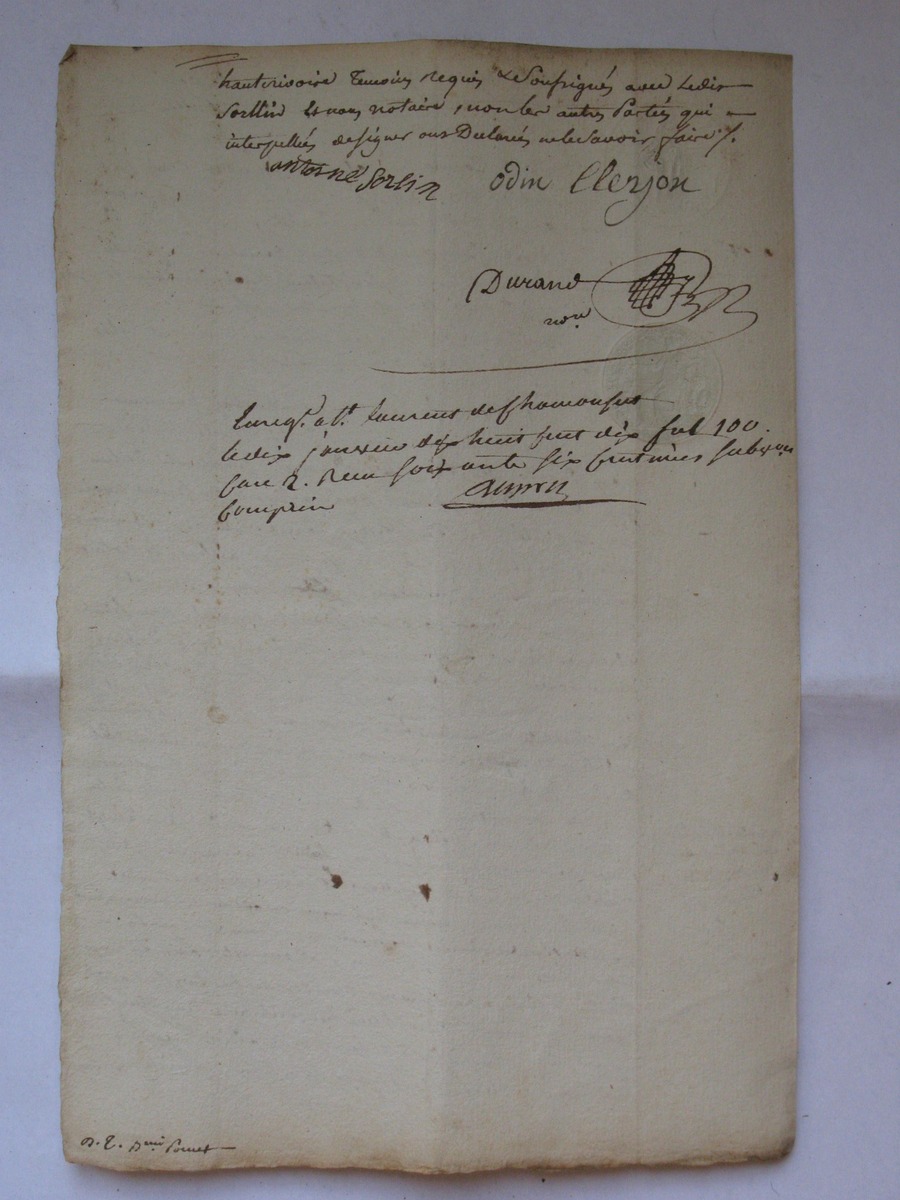 hauterivoire Temoins requis & Soussignés avec Ledit
Sorllin et nous notaire, non les autres Parties qui
interpellés de signer ont Declarés ne le Savoir faire /.
antoine Sorlin odin Clerjon
Durand
nore
Enregt. a St. Laurent de Chamousset
le dix janvier dix huit cent dix fol 100.
Case 2. Reçu soixante six Centimes subvon
Compris